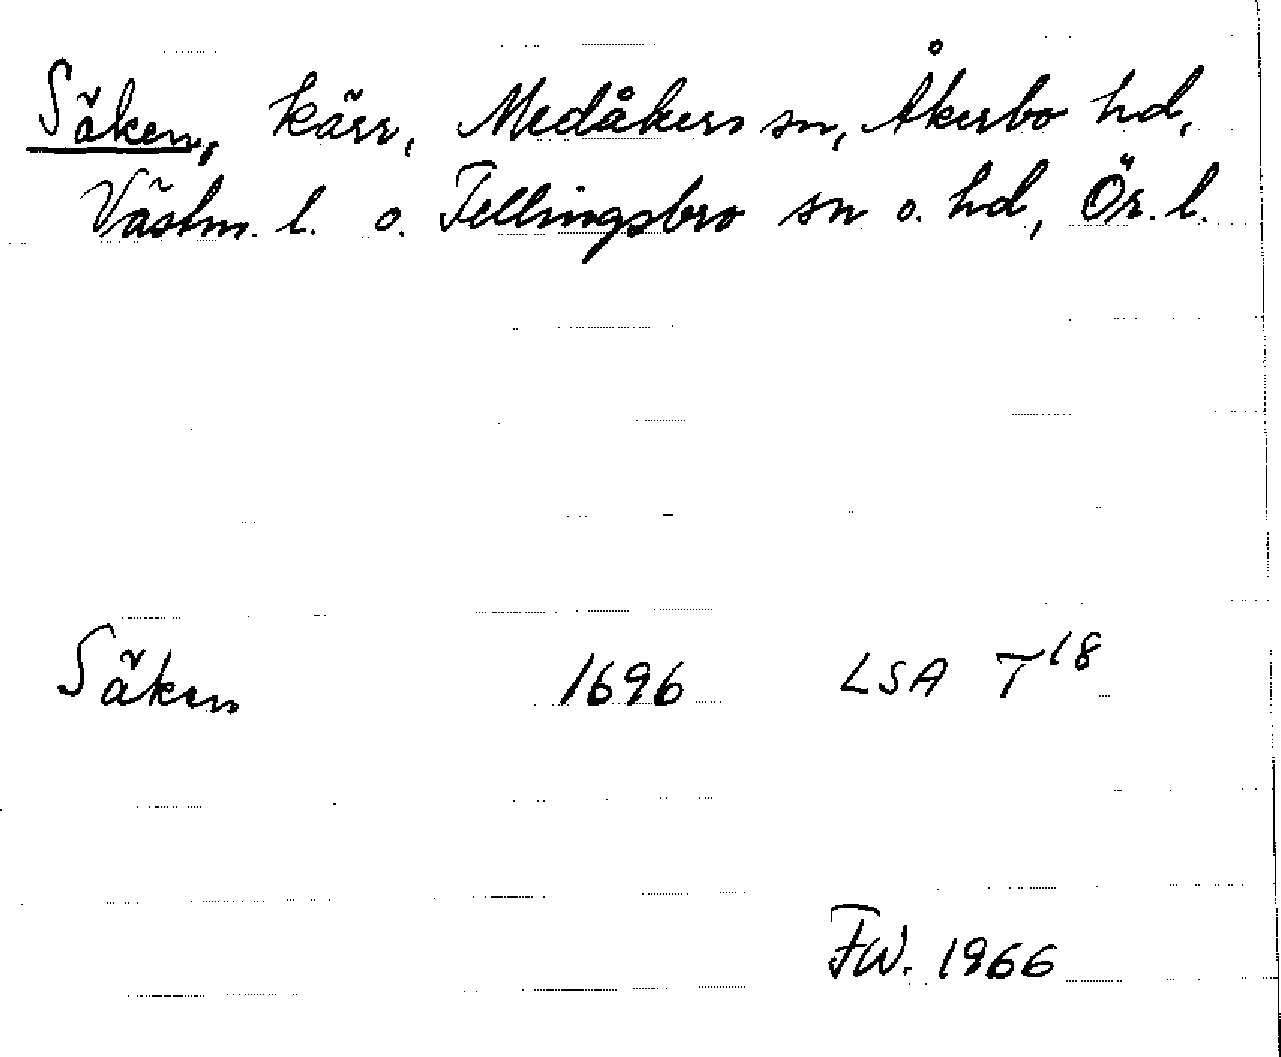 Säken, kärr, Medåkers sn, Åkerbo hd,
Västm. l. o. Fellingsbro sn o. hd, Ör. l.
Säken 1696 LSA T 18
F.W. 1966